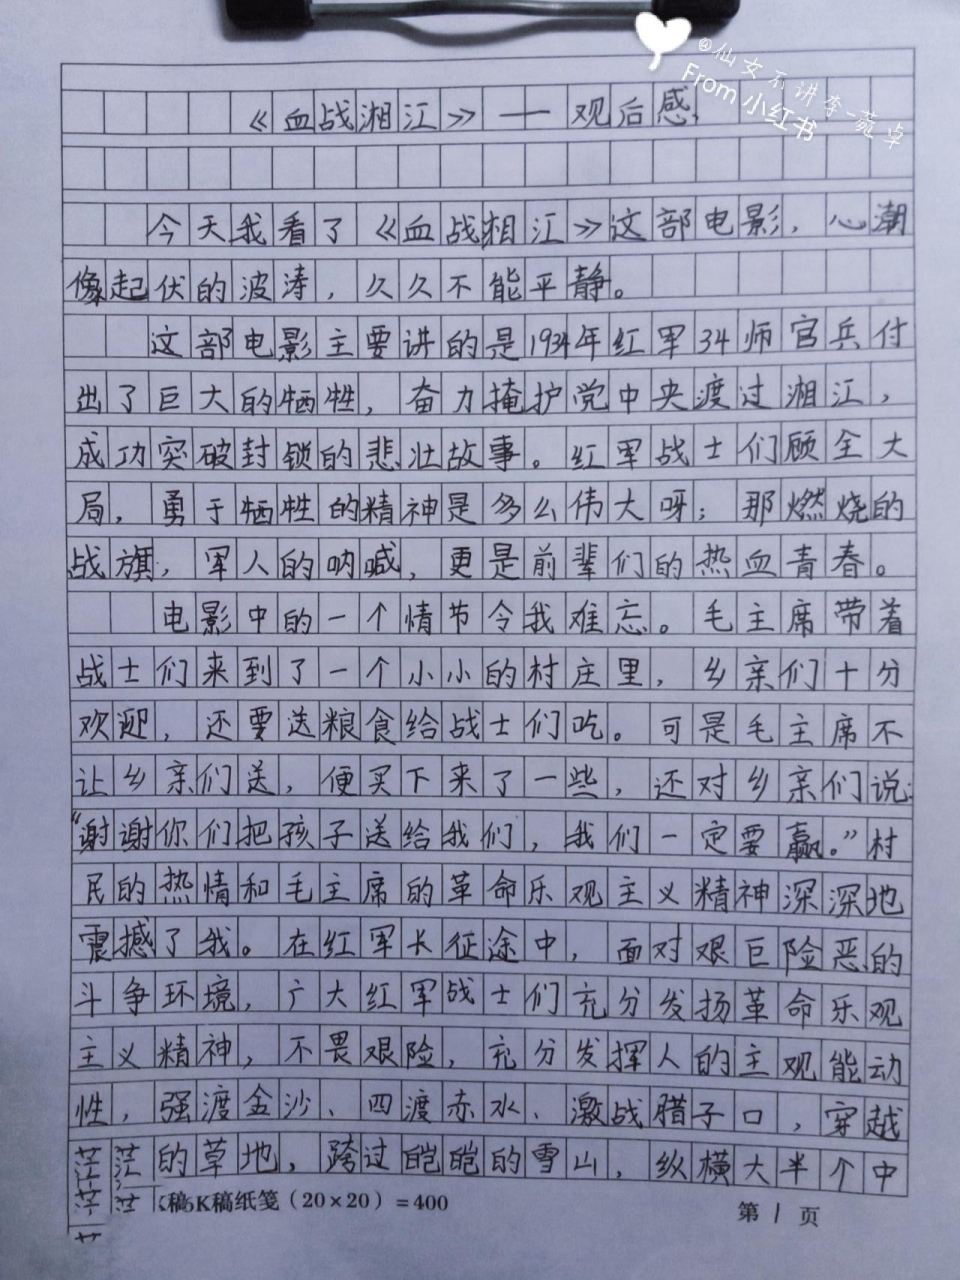 @仙女不讲李-菀卓
From 小红书
《血战湘江》——观后感
今天我看了《血战湘江》这部电影，心潮
像起伏的波涛，久久不能平静。
这部电影主要讲的是1934年红军34师官兵付
出了巨大的牺牲，奋力掩护党中央渡过湘江，
成功突破封锁的悲壮故事。红军战士们顾全大
局，勇于牺牲的精神是多么伟大呀；那燃烧的
战旗，军人的呐喊，更是前辈们的热血青春。
电影中的一个情节令我难忘。毛主席带着
战士们来到了一个小小的村庄里，乡亲们十分
欢迎，还要送粮食给战士们吃。可是毛主席不
让乡亲们送，便买下来了一些，还对乡亲们说：
“谢谢你们把孩子送给我们，我们一定要赢。”村
民的热情和毛主席的革命乐观主义精神深深地
震撼了我。在红军长征途中，面对艰巨险恶的
斗争环境，广大红军战士们充分发扬革命乐观
主义精神，不畏艰险，充分发挥人的主观能动
性，强渡金沙、四渡赤水、激战腊子口，穿越
茫茫的草地，跨过皑皑的雪山，纵横大半个中
16K稿纸笺（20×20）=400
第1页